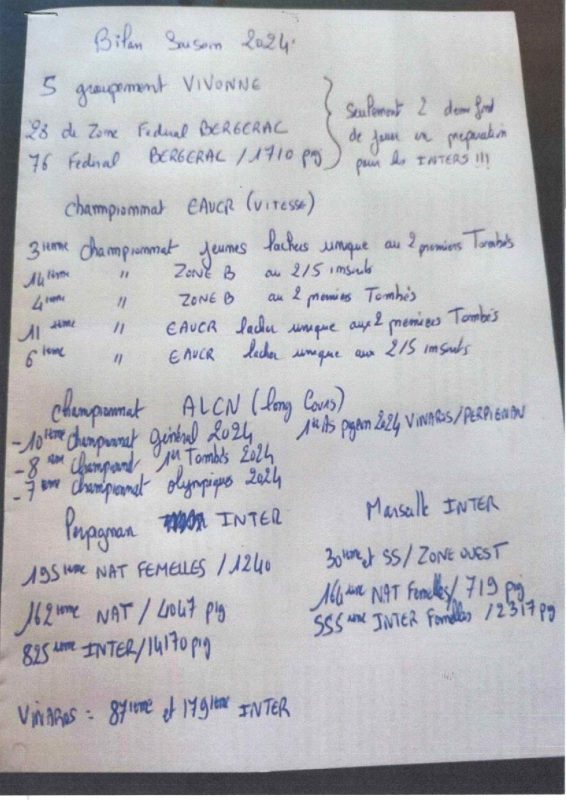 Bilan Saison 2024
5 groupement VIVONNE
28 de Zone Federal BERGERAC
76 Federal BERGERAC / 1710 pig
Seulement 2 demi fond
de jeun en preparation
pour les INTERS !!!
Championnat EAUCR (VITESSE)
3ième Championnat jeunes lachers unique au 2 premiers Tombés
14ième " ZONE B au 2/5 inscrits
4ième " ZONE B au 2 premiers Tombés
11 ième " EAUCR lacher unique aux 2 premiers Tombés
6ième " EAUCR lacher unique aux 2/5 inscrits
Championnat ALCN (long Cours)
- 10ième Championnat général 2024
1er As pigeon 2024 VINAROS/PERPIGNAN
- 8 ième Championnat 1er Tombés 2024
- 7 ième Championnat olympiques 2024
Perpignan INTER
195ième NAT FEMELLES / 1240
162ième NAT / 4047 pig
825ième INTER/14170 pig
Marseille INTER
30ième et 55/ ZONE OUEST
164ième NAT Femelles/ 719 pig
555ième INTER Femelles / 2317 pg
VINAROS = 87ième et 179ième INTER